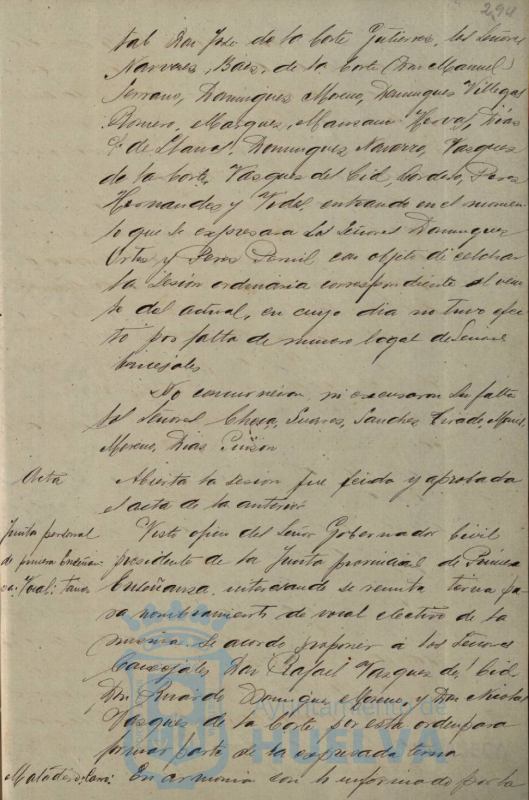 294
tal Don José de la Corte Gutierrez, los Señores
Narvaez, Baez, de la Corte (Don Manuel)
Serrano, Dominguez Moreno, Dominguez Villegas
Romero, Marquez, Hervas, Diaz
de Llanos, Dominguez Navarro, Vazquez
de la Corte, Vazquez del Cid, Cordero, Perez
Hernandez y Vides, entrando en el momen
to que se expresara los Señores Dominguez
Ortiz y Perez con objeto de celebrar
la sesion ordinaria correspondiente al vein
te del actual, en cuyo dia no tuvo efec
to por falta de numero legal de Señores
Concejales
No concurrieron, ni escusaron su falta
los Señores Checa, Suarez, Sanchez Tirado,
Moreno, Diaz Pinzon
Acta
Abierta la sesion fue leida y aprobada
el acta de la anterior
Junta
de primera Enseñan
za. Vocal: terna
Visto oficio del Señor Gobernador Civil
presidente de la Junta provincial de Primera
Enseñanza, interesando se remita terna pa
ra nombramiento de vocal electivo de la
misma. Se acordó proponer a los Señores
Concejales Don Rafael Vazquez del Cid,
Don Ricardo Dominguez Moreno, y Don Nicolas
Vazquez de la Corte por este orden para
formar parte de la expresada terna
Matadero:
En armonia con lo informado por la
Ayuntamiento de
HUELVA